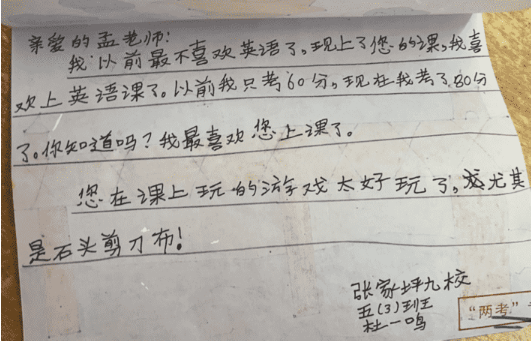 亲爱的孟老师：
我以前最不喜欢英语了，现上了您的课，我喜
欢上英语课了。以前我只考60分，现在我考了80分
了。你知道吗？我最喜欢您上课了。
您在课上玩的游戏太好玩了，尤其
是石头剪刀布！
张家坪九校
五(3)班
杜一鸣
"两考"